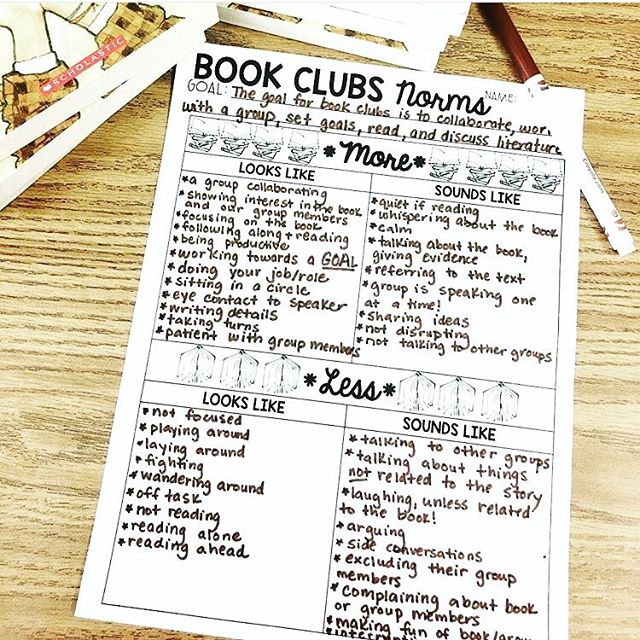 SCHOLASTIC
BOOK CLUBS Norms
NAME:
GOAL: The goal for book clubs is to collaborate, work
with a group, set goals, read, and discuss literature
*More*
LOOKS LIKE
*a group collaborating
*showing interest in the book
and our group members
*focusing on the book
*following along + reading
*being productive
*working towards a GOAL
*doing your job/role
*sitting in a circle
*eye contact to speaker
*writing details
*taking turns
*patient with group members
SOUNDS LIKE
*quiet if reading
*whispering about the book
*calm
*talking about the book,
giving evidence
*referring to the text
*group is speaking one
at a time!
*sharing ideas
*not disrupting
*not talking to other groups
*Less*
LOOKS LIKE
*not focused
*playing around
*laying around
*fighting
*wandering around
*off task
*not reading
*reading alone
*reading ahead
SOUNDS LIKE
*talking to other groups
*talking about things
not related to the story
*laughing, unless related
to the book!
*arguing
*side conversations
*excluding their group
members
*complaining about book
or group members
*making fun of book/group